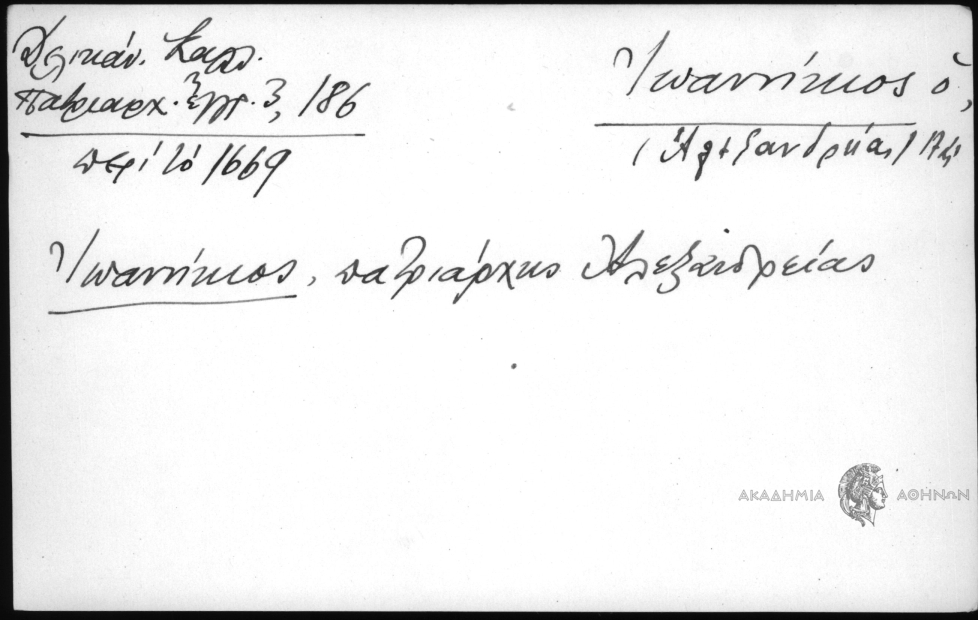 Δελικάν. Καλλ.
Πατριαρχ. Ἔγγρ. 3, 186
περὶ τὸ 1669
Ἰωαννίκιος ὁ,
(Ἀλεξανδρείας)
Ἰωαννίκιος, πατριάρχης Ἀλεξανδρείας
ΑΚΑΔΗΜΙΑ ΑΘΗΝΩΝ